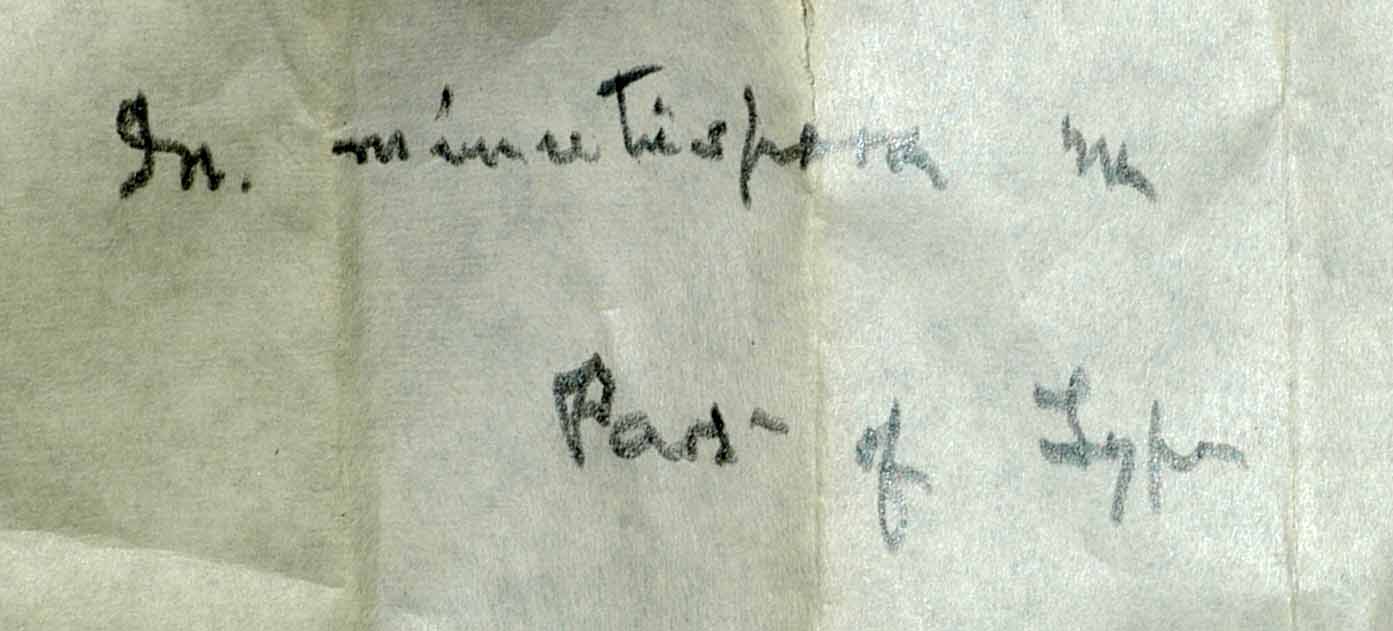 In. minutispora m
Part of Type